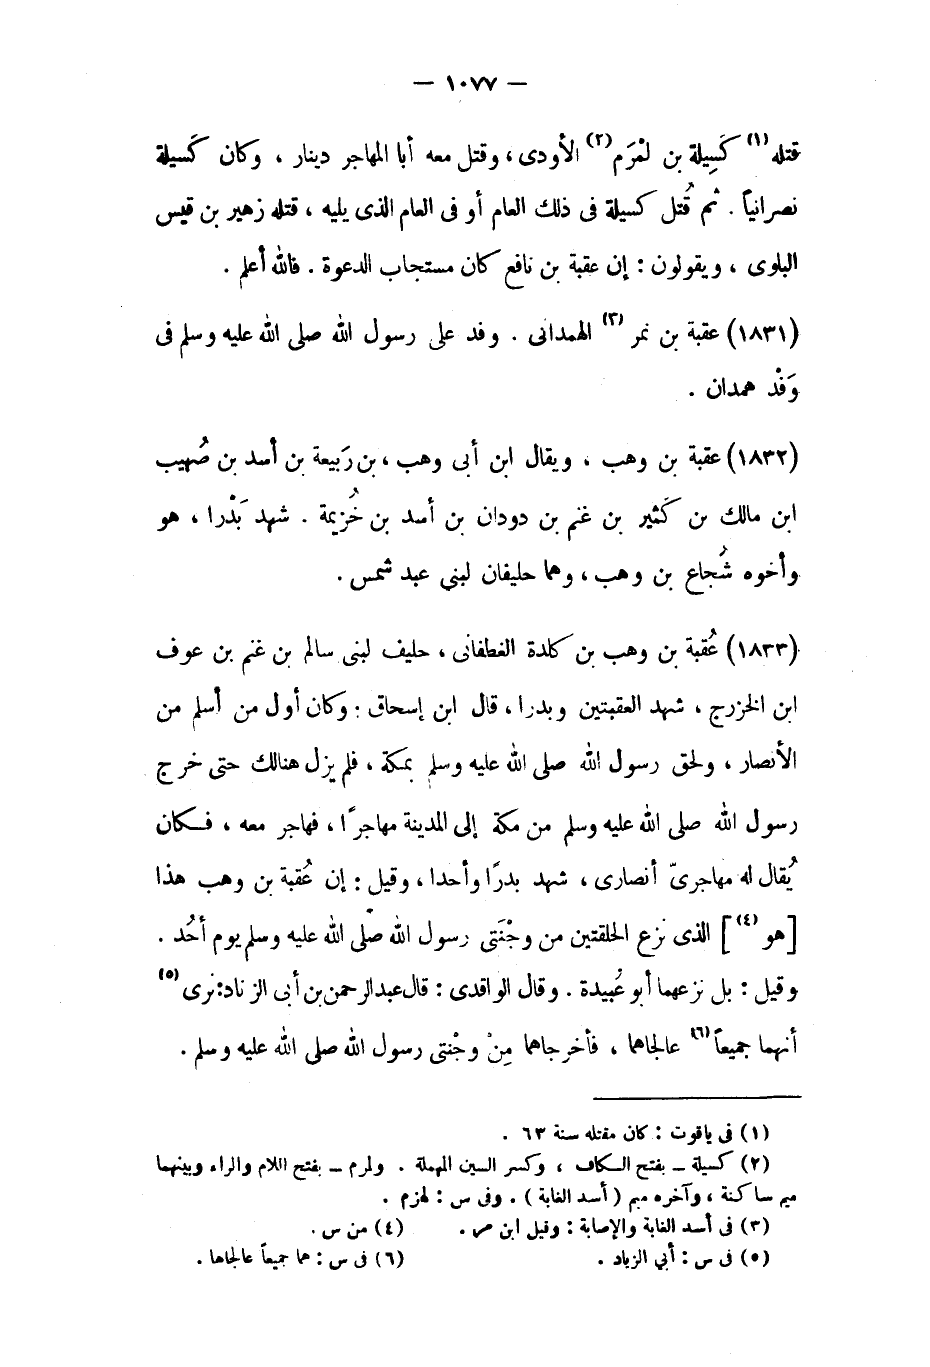 — ١٠٧٧ —
قتله (١) كَسِيلة بن لمْرَم (٢) الأودى ، وقتل معه أبا المهاجر دينار ، وكان كَسيلة
نصرانياً . ثم قُتل كسيلة فى ذلك العام أو فى العام الذى يليه ، قتله زهير بن قيس
البلوى ، ويقولون : إن عقبة بن نافع كان مستجاب الدعوة . فالله أعلم .
(١٨٣١) عقبة بن نمر (٣) الهمدانى . وفد على رسول الله صلى الله عليه وسلم فى
وَفْد همدان .
(١٨٣٢) عقبة بن وهب ، ويقال ابن أبى وهب ، بن رَبيعة بن أسد بن صُهيب
ابن مالك بن كَثير بن غنم بن دودان بن أسد بن خُزيمة . شهد بَدْرا ، هو
وأخوه شُجاع بن وهب ، وهما حليفان لبني عبد شمس .
(١٨٣٣) عُقبة بن وهب بن كلدة الغطفانى ، حليف لبنى سالم بن غنم بن عوف
ابن الخزرج ، شهد العقبتين وبدرا ، قال ابن إسحاق : وكان أول من أسلم من
الأنصار ، ولحق رسول الله صلى الله عليه وسلم بمكة ، فلم يزل هنالك حتى خرج
رسول الله صلى الله عليه وسلم من مكة إلى المدينة مهاجرًا ، فهاجر معه ، فكان
يُقال له مهاجرىّ أنصارى ، شهد بدرًا وأحدا ، وقيل : إن عُقبة بن وهب هذا
[هو (٤)] الذى نزع الحلقتين من وجْنَتى رسول الله صلى الله عليه وسلم يوم أُحُد .
وقيل : بل نزعهما أبو عُبيدة . وقال الواقدى : قال عبد الرحمن بن أبى الزناد : نرى (٥)
أنهما جميعاً (٦) عالجاهما ، فأخرجاهما مِنْ وجْنتى رسول الله صلى الله عليه وسلم .
(١) فى ياقوت : كان مقتله سنة ٦٣ .
(٢) كسيلة ـ بفتح الكاف ، وكسر السين المهملة . ولمرم ـ بفتح اللام والراء وبينهما
ميم ساكنة ، وآخره ميم (أسد الغابة) . وفى س : لهزم .
(٣) فى أسد الغابة والإصابة : وقيل ابن مر . (٤) من س .
(٥) فى س : أبي الزياد . (٦) فى س : هما جميعاً عالجاها .